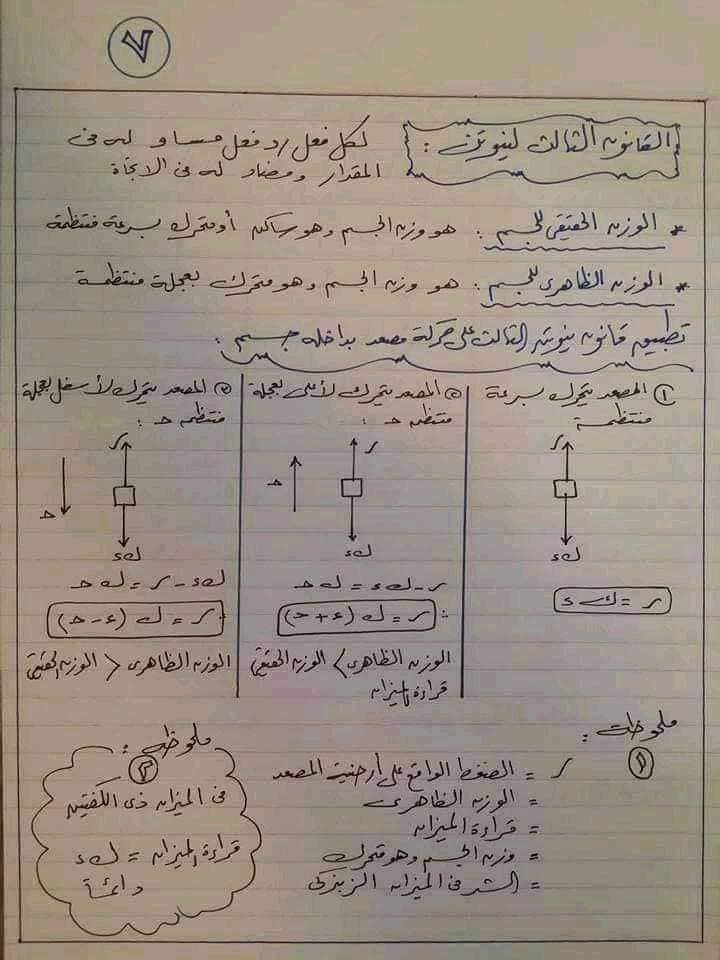 ٧
القانون الثالث لنيوتن :
لكل فعل رد فعل مساو له فى
المقدار ومضاد له فى الاتجاة
* الوزن الحقيقى للجسم : هو وزن الجسم وهو ساكن أو متحرك بسرعة منتظمة
* الوزن الظاهرى للجسم : هو وزن الجسم وهو متحرك بعجلة منتظمة
تطبيق قانون نيوتن الثالث على حركة مصعد بداخله جسم :
١ المصعد يتحرك بسرعة
منتظمة
ر
ك ء
ر = ك ء
المصعد يتحرك لأعلى بعجلة
منتظمه حـ :
ر
حـ
ك ء
ر - ك ء = ك حـ
∴ ر = ك (ء + حـ)
الوزن الظاهرى > الوزن الحقيقى
قراءة الميزان
المصعد يتحرك لأسفل بعجلة
منتظمه حـ :
ر
حـ
ك ء
ك ء - ر = ك حـ
∴ ر = ك (ء - حـ)
الوزن الظاهرى < الوزن الحقيقى
ملحوظات :
١
ر = الضغط الواقع على أرضية المصعد
= الوزن الظاهرى
= قراءة الميزان
= وزن الجسم وهو متحرك
= الشد فى الميزان الزنبركى
ملحوظه :
٢
فى الميزان ذى الكفتين
قراءة الميزان = ك ء
دائماً